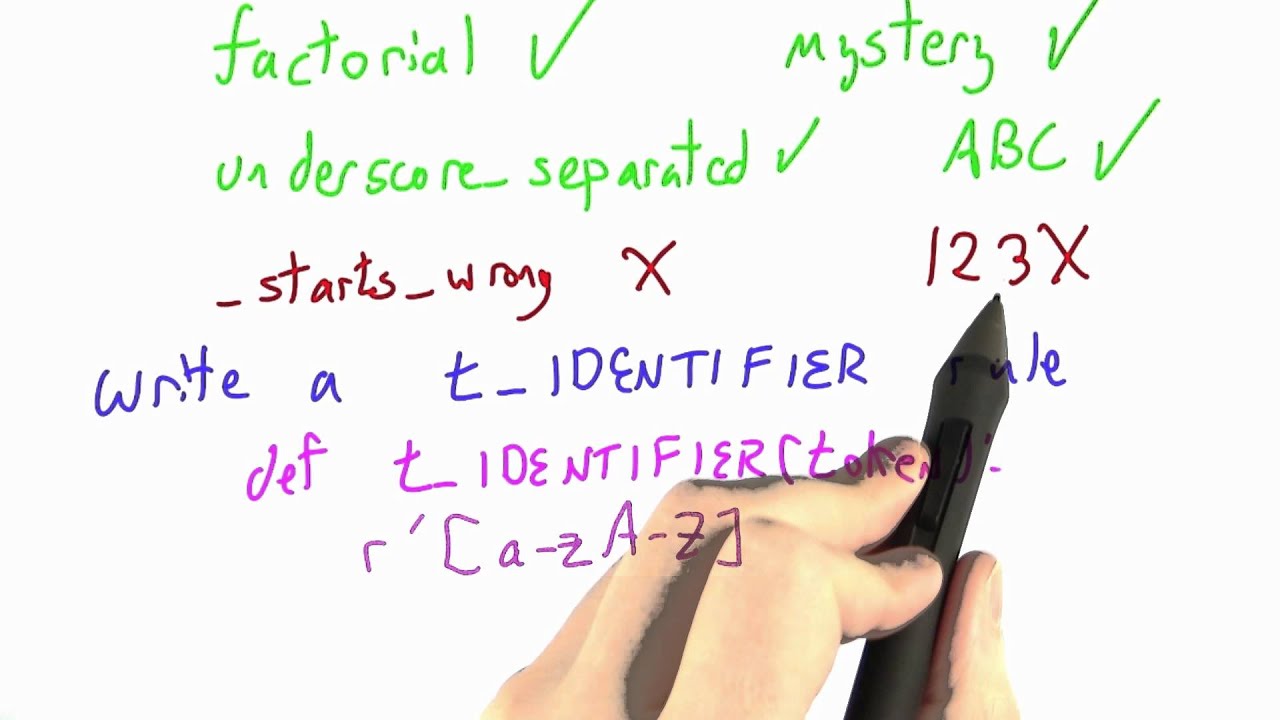 factorial ✓ mystery ✓
underscore_separated ✓ ABC ✓
_starts_wrong X 123X
write a t_IDENTIFIER rule
def t_IDENTIFIER(token):
r'[a-zA-Z]